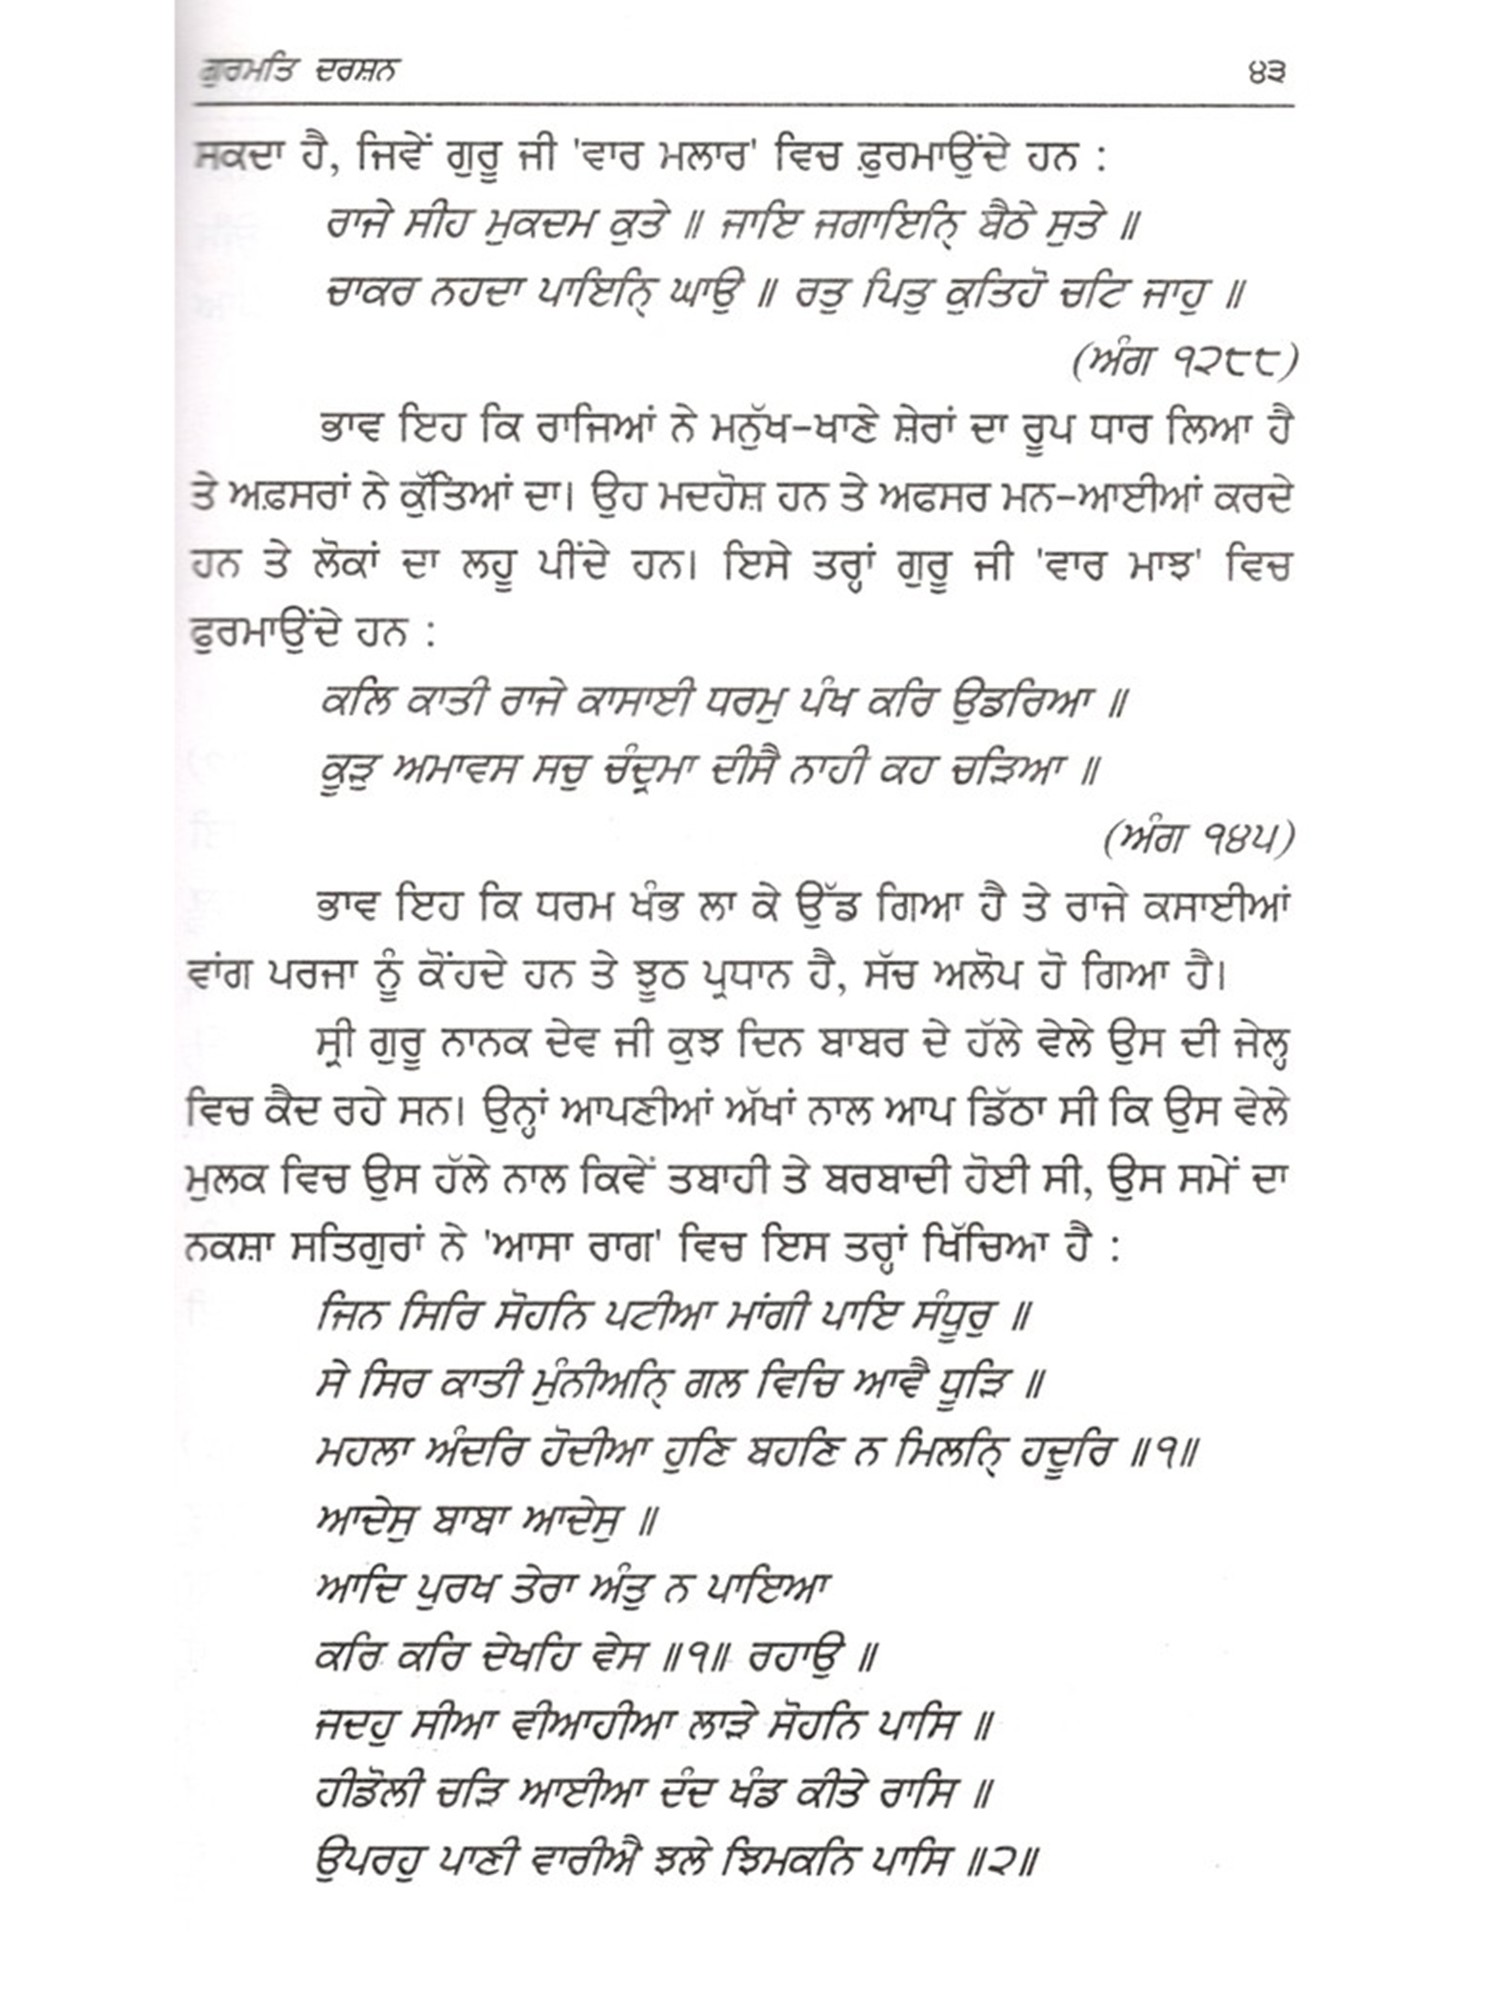 ਗੁਰਮਤਿ ਦਰਸ਼ਨ ੪੩
ਸਕਦਾ ਹੈ, ਜਿਵੇਂ ਗੁਰੂ ਜੀ 'ਵਾਰ ਮਲਾਰ' ਵਿਚ ਫ਼ੁਰਮਾਉਂਦੇ ਹਨ :
ਰਾਜੇ ਸੀਹ ਮੁਕਦਮ ਕੁਤੇ ॥ ਜਾਇ ਜਗਾਇਨ੍ਹਿ ਬੈਠੇ ਸੁਤੇ ॥
ਚਾਕਰ ਨਹਦਾ ਪਾਇਨ੍ਹਿ ਘਾਉ ॥ ਰਤੁ ਪਿਤੁ ਕੁਤਿਹੋ ਚਟਿ ਜਾਹੁ ॥
(ਅੰਗ ੧੨੮੮)
ਭਾਵ ਇਹ ਕਿ ਰਾਜਿਆਂ ਨੇ ਮਨੁੱਖ-ਖਾਣੇ ਸ਼ੇਰਾਂ ਦਾ ਰੂਪ ਧਾਰ ਲਿਆ ਹੈ
ਤੇ ਅਫ਼ਸਰਾਂ ਨੇ ਕੁੱਤਿਆਂ ਦਾ। ਉਹ ਮਦਹੋਸ਼ ਹਨ ਤੇ ਅਫਸਰ ਮਨ-ਆਈਆਂ ਕਰਦੇ
ਹਨ ਤੇ ਲੋਕਾਂ ਦਾ ਲਹੂ ਪੀਂਦੇ ਹਨ। ਇਸੇ ਤਰ੍ਹਾਂ ਗੁਰੂ ਜੀ 'ਵਾਰ ਮਾਝ' ਵਿਚ
ਫੁਰਮਾਉਂਦੇ ਹਨ :
ਕਲਿ ਕਾਤੀ ਰਾਜੇ ਕਾਸਾਈ ਧਰਮੁ ਪੰਖ ਕਰਿ ਉਡਰਿਆ ॥
ਕੂੜੁ ਅਮਾਵਸ ਸਚੁ ਚੰਦ੍ਰਮਾ ਦੀਸੈ ਨਾਹੀ ਕਹ ਚੜਿਆ ॥
(ਅੰਗ ੧੪੫)
ਭਾਵ ਇਹ ਕਿ ਧਰਮ ਖੰਭ ਲਾ ਕੇ ਉੱਡ ਗਿਆ ਹੈ ਤੇ ਰਾਜੇ ਕਸਾਈਆਂ
ਵਾਂਗ ਪਰਜਾ ਨੂੰ ਕੋਂਹਦੇ ਹਨ ਤੇ ਝੂਠ ਪ੍ਰਧਾਨ ਹੈ, ਸੱਚ ਅਲੋਪ ਹੋ ਗਿਆ ਹੈ।
ਸ੍ਰੀ ਗੁਰੂ ਨਾਨਕ ਦੇਵ ਜੀ ਕੁਝ ਦਿਨ ਬਾਬਰ ਦੇ ਹੱਲੇ ਵੇਲੇ ਉਸ ਦੀ ਜੇਲ੍ਹ
ਵਿਚ ਕੈਦ ਰਹੇ ਸਨ। ਉਨ੍ਹਾਂ ਆਪਣੀਆਂ ਅੱਖਾਂ ਨਾਲ ਆਪ ਡਿੱਠਾ ਸੀ ਕਿ ਉਸ ਵੇਲੇ
ਮੁਲਕ ਵਿਚ ਉਸ ਹੱਲੇ ਨਾਲ ਕਿਵੇਂ ਤਬਾਹੀ ਤੇ ਬਰਬਾਦੀ ਹੋਈ ਸੀ, ਉਸ ਸਮੇਂ ਦਾ
ਨਕਸ਼ਾ ਸਤਿਗੁਰਾਂ ਨੇ 'ਆਸਾ ਰਾਗ' ਵਿਚ ਇਸ ਤਰ੍ਹਾਂ ਖਿੱਚਿਆ ਹੈ :
ਜਿਨ ਸਿਰਿ ਸੋਹਨਿ ਪਟੀਆ ਮਾਂਗੀ ਪਾਇ ਸੰਧੂਰੁ ॥
ਸੇ ਸਿਰ ਕਾਤੀ ਮੁੰਨੀਅਨ੍ਹਿ ਗਲ ਵਿਚਿ ਆਵੈ ਧੂੜਿ ॥
ਮਹਲਾ ਅੰਦਰਿ ਹੋਦੀਆ ਹੁਣਿ ਬਹਣਿ ਨ ਮਿਲਨ੍ਹਿ ਹਦੂਰਿ ॥੧॥
ਆਦੇਸੁ ਬਾਬਾ ਆਦੇਸੁ ॥
ਆਦਿ ਪੁਰਖ ਤੇਰਾ ਅੰਤੁ ਨ ਪਾਇਆ
ਕਰਿ ਕਰਿ ਦੇਖਹਿ ਵੇਸ ॥੧॥ ਰਹਾਉ ॥
ਜਦਹੁ ਸੀਆ ਵੀਆਹੀਆ ਲਾੜੇ ਸੋਹਨਿ ਪਾਸਿ ॥
ਹੀਡੋਲੀ ਚੜਿ ਆਈਆ ਦੰਦ ਖੰਡ ਕੀਤੇ ਰਾਸਿ ॥
ਉਪਰਹੁ ਪਾਣੀ ਵਾਰੀਐ ਝਲੇ ਝਿਮਕਨਿ ਪਾਸਿ ॥੨॥